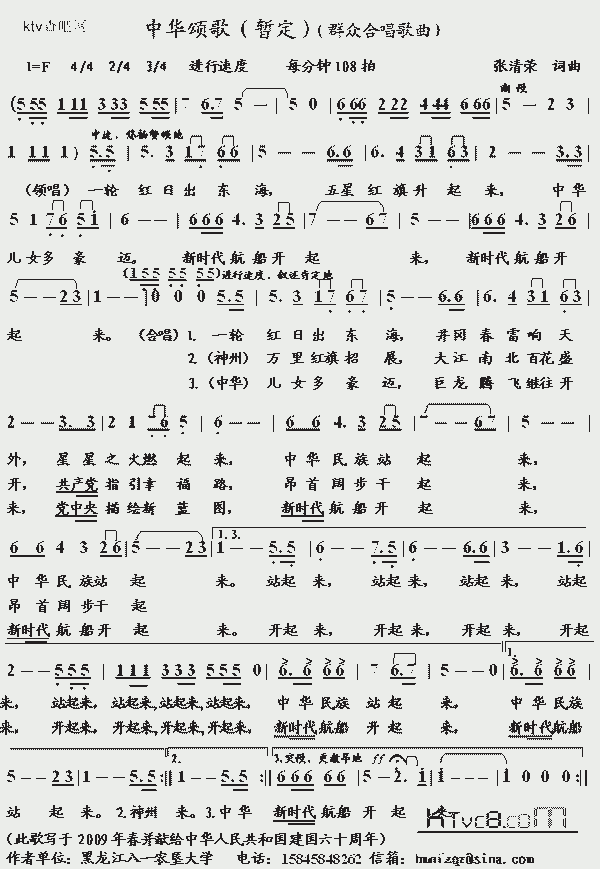 ktv音吧网
中华颂歌（暂定）（群众合唱歌曲）
1=F 4/4 2/4 3/4 进行速度 每分钟108拍 张清荣 词曲
渐慢
(5 55 1 11 3 33 5 55 | 7 6.7 5 — | 5 0 | 6 66 2 22 4 44 6 66 | 5 — 2 3 |
中速、
1 11 1 ) 5.5 | 5. 3 17 66 | 5 — — 6.6 | 6. 4 31 63 | 2 — — 3.3 |
（领唱）一轮 红日出 东 海， 五星 红旗升 起 来， 中华
5 1 76 51 | 6 — — | 666 4. 3 25 | 7 — — 67 | 5 — — | 666 4. 3 26 |
儿女多 豪 迈。 新时代航船开 起 来， 新时代航船开
(155 55 55) 进行速度、叙述肯定地
5 — — 23 | 1 — — | 0 0 0 5.5 | 5. 3 17 67 | 5 — — 6.6 | 6. 4 31 63 |
起 来。（合唱）1. 一轮 红日出 东 海， 井冈春雷响天
2.（神州）万里红旗招 展， 大江南北百花盛
3.（中华）儿女多 豪 迈， 巨龙腾飞继往开
2 — — 3.3 | 2 1 76 5 | 6 — — | 6 6 4. 3 25 | 7 — — 67 | 5 — — |
外， 星星之火燃 起来， 中华民族站 起 来，
开， 共产党指引幸 福路， 昂首阔步干 起 来，
来， 党中央描绘新 蓝图， 新时代航船开 起 来，
1.3.
6 6 4 3 26 | 5 — — 23 | 1 — — 5.5 | 6 — — 7.5 | 6 — — 6.6 | 3 — — 1.6 |
中华民族站 起 来。站起 来， 站起 来， 站起 来， 站起
昂首阔步干 起
新时代航船开 起 来。开起 来， 开起 来， 开起 来， 开起
1.
2 — — 555 | 111 333 555 0 | 6. 6 66 | 7 6.7 | 5 — — 0 | 6. 6 66 |
来， 站起来，站起来，站起来，站起来， 中华民族 站起 来， 中华民族
来， 开起来，开起来，开起来，开起来， 新时代航船 开起 来， 新时代航船
2. 3.突慢、 ff
5 — — 23 | 1 — — 5.5 :|| 1 — — 5.5 :|| 666 66 | 5 — 2. 1 | 1 — — — | 1 0 0 0 :||
站 起 来。2.神州 来。3.中华 新时代航船 开 起 来
KTvc8.com
（此歌写于2009年春并献给中华人民共和国建国六十周年）
作者单位：黑龙江八一农垦大学 电话：15845848262 信箱：